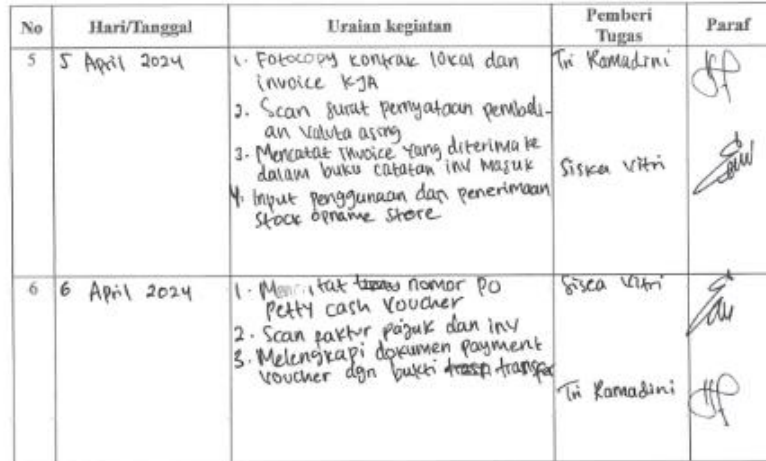 No Hari/Tanggal Uraian kegiatan Pemberi Tugas Paraf
5 5 April 2024
1. Fotocopy kontrak lokal dan
invoice KJA
2. Scan surat pernyataan pembeli-
an valuta asing
3. Mencatat invoice yang diterima ke
dalam buku catatan inv masuk
4. Input penggunaan dan penerimaan
stock opname store
Tri Ramadini
Siska Vitri
6 6 April 2024
1. Mencatat nomor PO
petty cash voucher
2. Scan faktur pajak dan inv
3. Melengkapi dokumen payment
voucher dgn bukti transfer
Sisca Vitri
Tri Ramadini